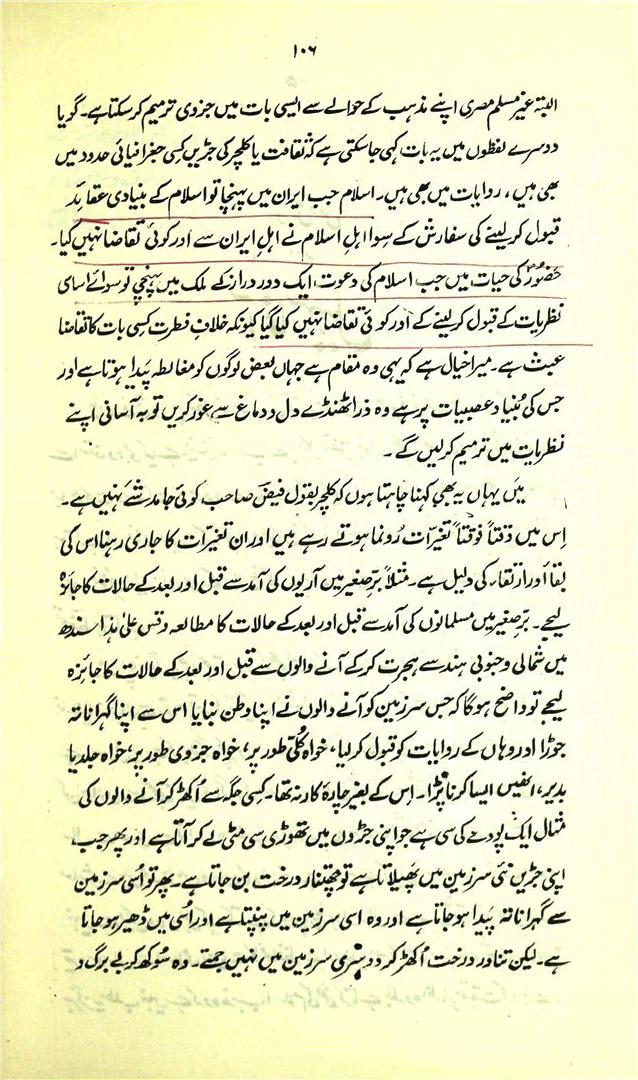 ۱۰۶
البتہ غیر مسلم مصری اپنے مذہب کے حوالے سے ایسی بات میں جزوی ترمیم کر سکتا ہے۔ گویا
دوسرے لفظوں میں یہ بات کہی جا سکتی ہے کہ ثقافت یا کلچر کی جڑیں کسی جغرافیائی حدود میں
بھی ہیں، روایات میں بھی ہیں۔ اسلام جب ایران میں پہنچا تو اسلام کے بنیادی عقائد
قبول کر لینے کی سفارش کے سوا اہلِ اسلام نے اہلِ ایران سے اور کوئی تقاضا نہیں کیا۔
حضورؐ کی حیات میں جب اسلام کی دعوت، ایک دور دراز کے ملک میں پہنچی تو سوائے اساسی
نظریات کے قبول کر لینے کے اور کوئی تقاضا نہیں کیا گیا کیونکہ خلافِ فطرت کسی بات کا تقاضا
عبث ہے۔ میرا خیال ہے کہ یہی وہ مقام ہے جہاں بعض لوگوں کو مغالطہ پیدا ہوتا ہے اور
جس کی بُنیاد عصبیات پر ہے وہ ذرا ٹھنڈے دل و دماغ سے غور کریں تو بہ آسانی اپنے
نظریات میں ترمیم کر لیں گے۔
میں یہاں یہ بھی کہنا چاہتا ہوں کہ کلچر بقول فیض صاحب کوئی جامد شے نہیں ہے۔
اِس میں وقتاً فوقتاً تغیرّات رُونما ہوتے رہے ہیں اور ان تغیرّات کا جاری رہنا اس کی
بقا اور ارتقاء کی دلیل ہے۔ مثلاً برِّ صغیر میں آریوں کی آمد سے قبل اور بعد کے حالات کا جائزہ
لیجے۔ برِّ صغیر میں مسلمانوں کی آمد سے قبل اور بعد کے حالات کا مطالعہ وقس علیٰ ہذا سندھ
میں شمالی و جنوبی ہند سے ہجرت کر کے آنے والوں سے قبل اور بعد کے حالات کا جائزہ
لیجے تو واضح ہوگا کہ جس سرزمین کو آنے والوں نے اپنا وطن بنایا اس سے اپنا گہرا ناتہ
جوڑا اور وہاں کے روایات کو قبول کر لیا، خواہ کُلّی طور پر، خواہ جزوی طور پر، خواہ جلد یا
بدیر، انھیں ایسا کرنا پڑا۔ اِس کے بغیر چارۂ کار نہ تھا۔ کسی جگہ سے اُکھڑ کر آنے والوں کی
مثال ایک پودے کی سی ہے جو اپنی جڑوں میں تھوڑی سی مٹی لے کر آتا ہے اور پھر جب،
اپنی جڑیں نئی سرزمین میں پھیلاتا ہے تو چھتنار درخت بن جاتا ہے۔ پھر تو اُسی سرزمین
سے گہرا ناتہ پیدا ہو جاتا ہے اور وہ اسی سرزمین میں پنپتا ہے اور اُسی میں ڈھیر ہو جاتا
ہے۔ لیکن تناور درخت اُکھڑ کر دوسری سرزمین میں نہیں جمتے۔ وہ سُوکھ کر بے برگ و